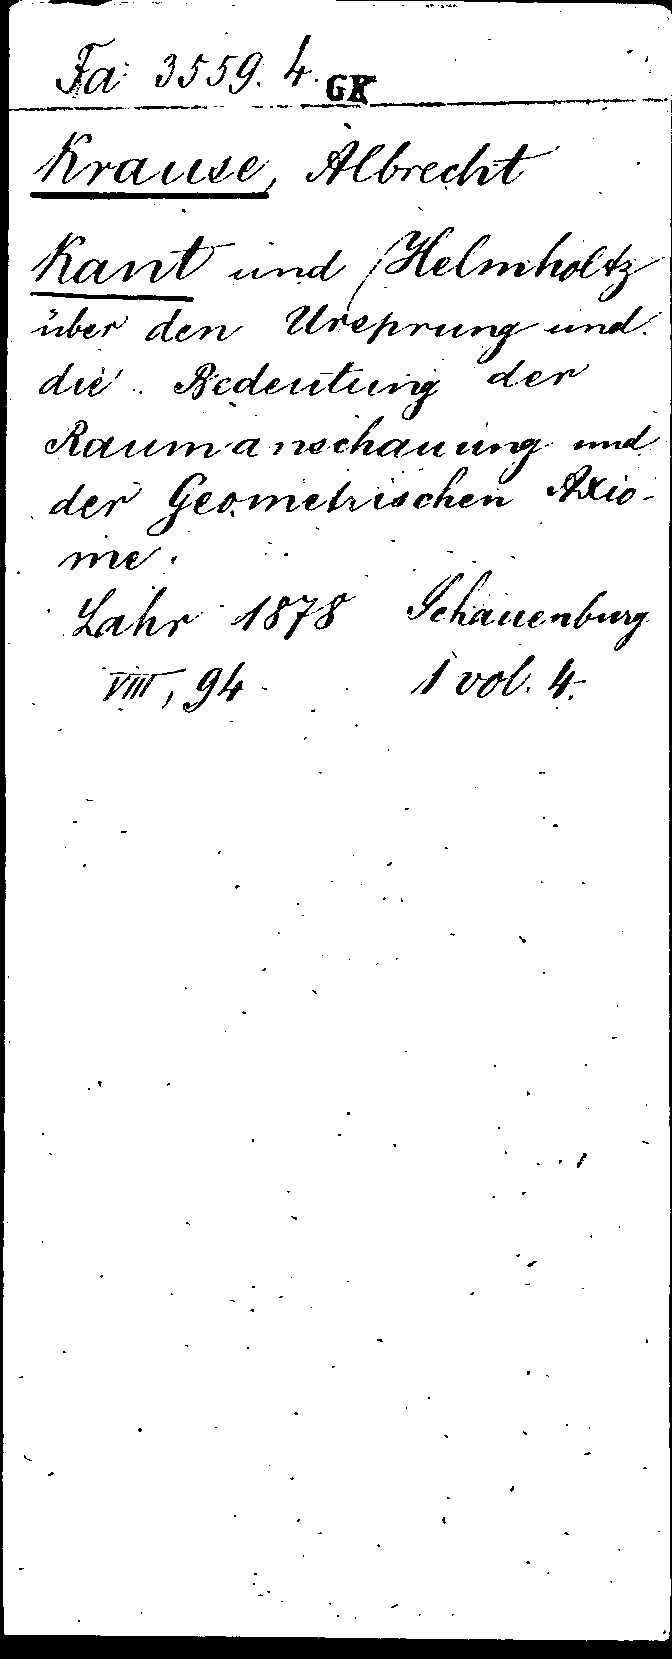 Fa 3559. 4. GK
Krause, Albrecht
Kant und Helmholtz
über den Ursprung und
die Bedeutung der
Raumanschauung und
der Geometrischen Axio-
me.
Lahr 1878 Schauenburg
VIII, 94 1 vol. 4.